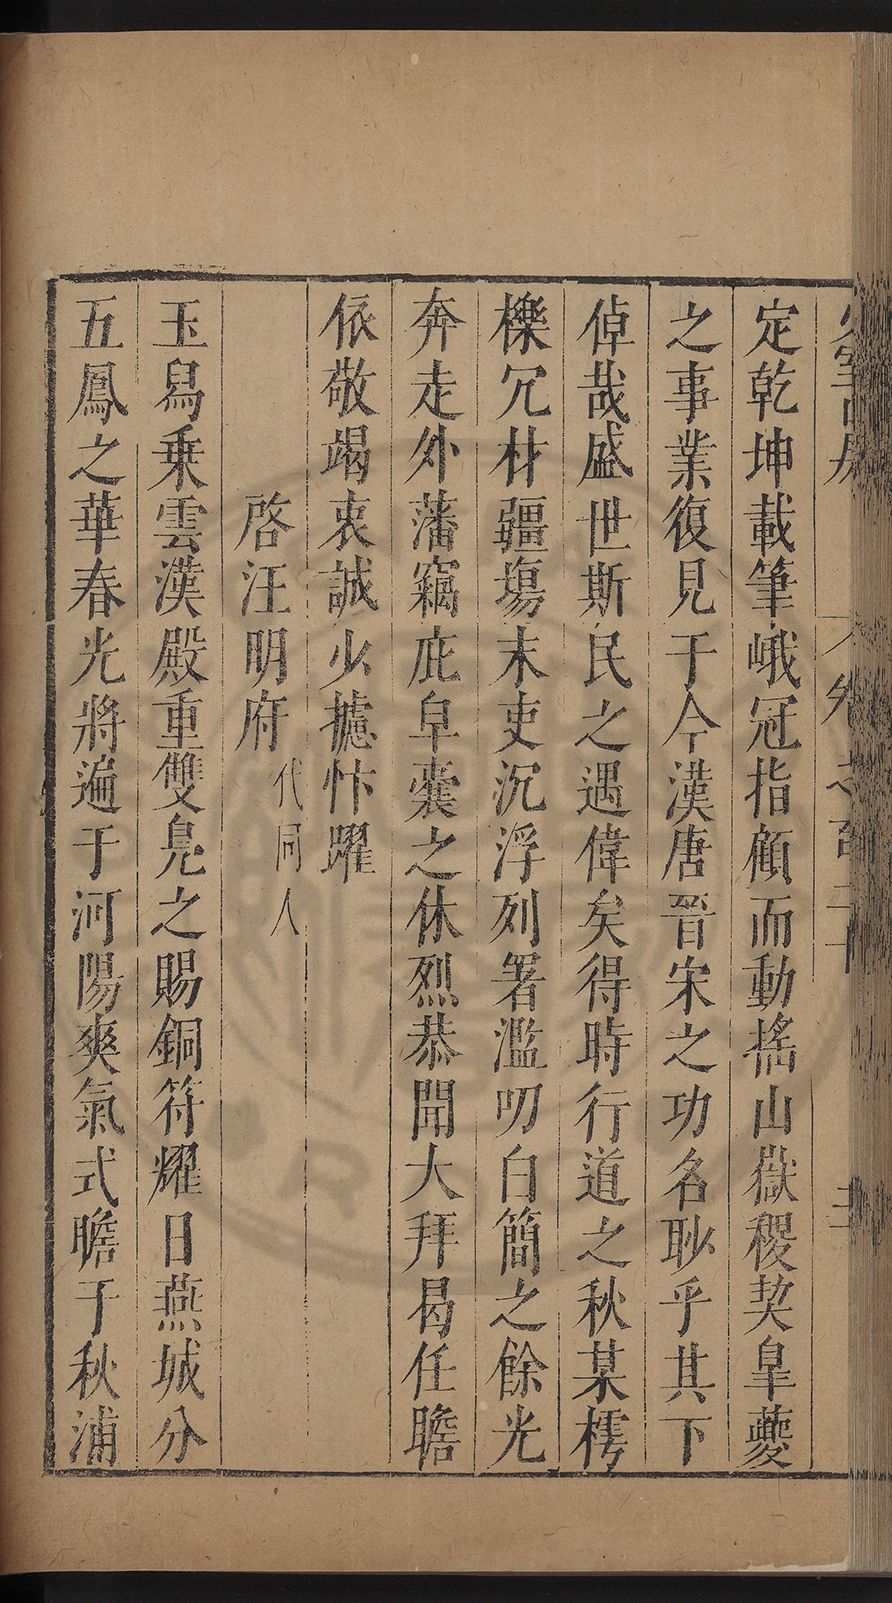 卷之百二十
定乾坤載筆峨冠指顧而動搖山嶽稷契皐夔
之事業復見于今漢唐晉宋之功名耻乎其下
倬哉盛世斯民之遇偉矣得時行道之秋某樗
櫟冗材疆塲末吏沉浮列署濫叨白簡之餘光
奔走外藩竊庇皁囊之休烈恭聞大拜曷任瞻
依敬竭衷誠少攄忭躍
啓汪明府 代同人
玉舄乗雲漢殿重雙鳬之賜銅符耀日燕城分
五鳳之華春光將遍于河陽爽氣式瞻于秋浦